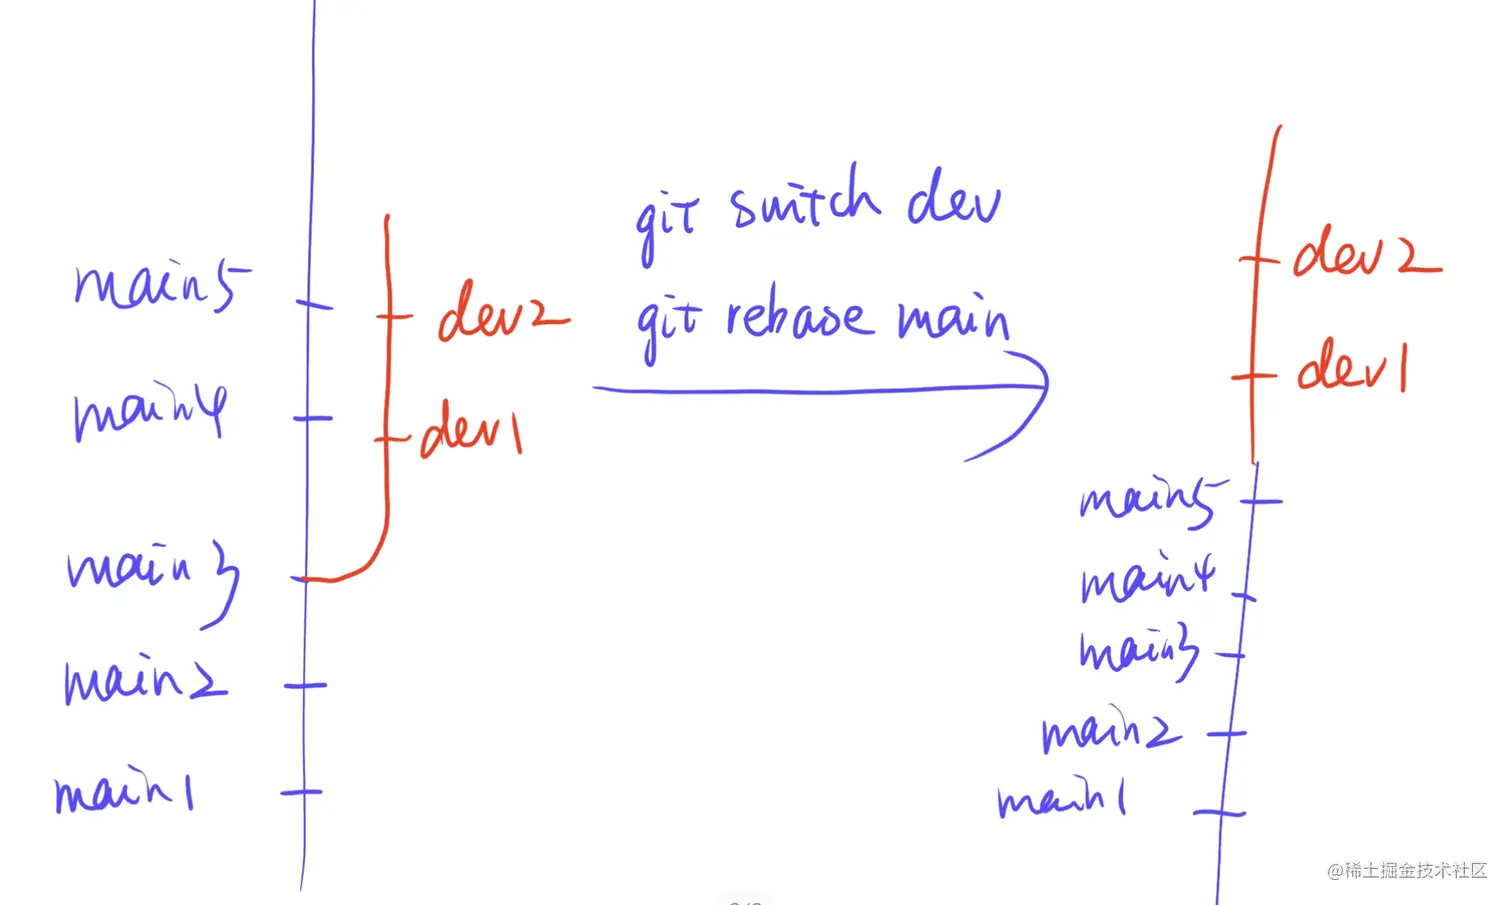 main5
main4
main3
main2
main1
dev2
dev1
git switch dev
git rebase main
dev2
dev1
main5
main4
main3
main2
main1
@稀土掘金技术社区